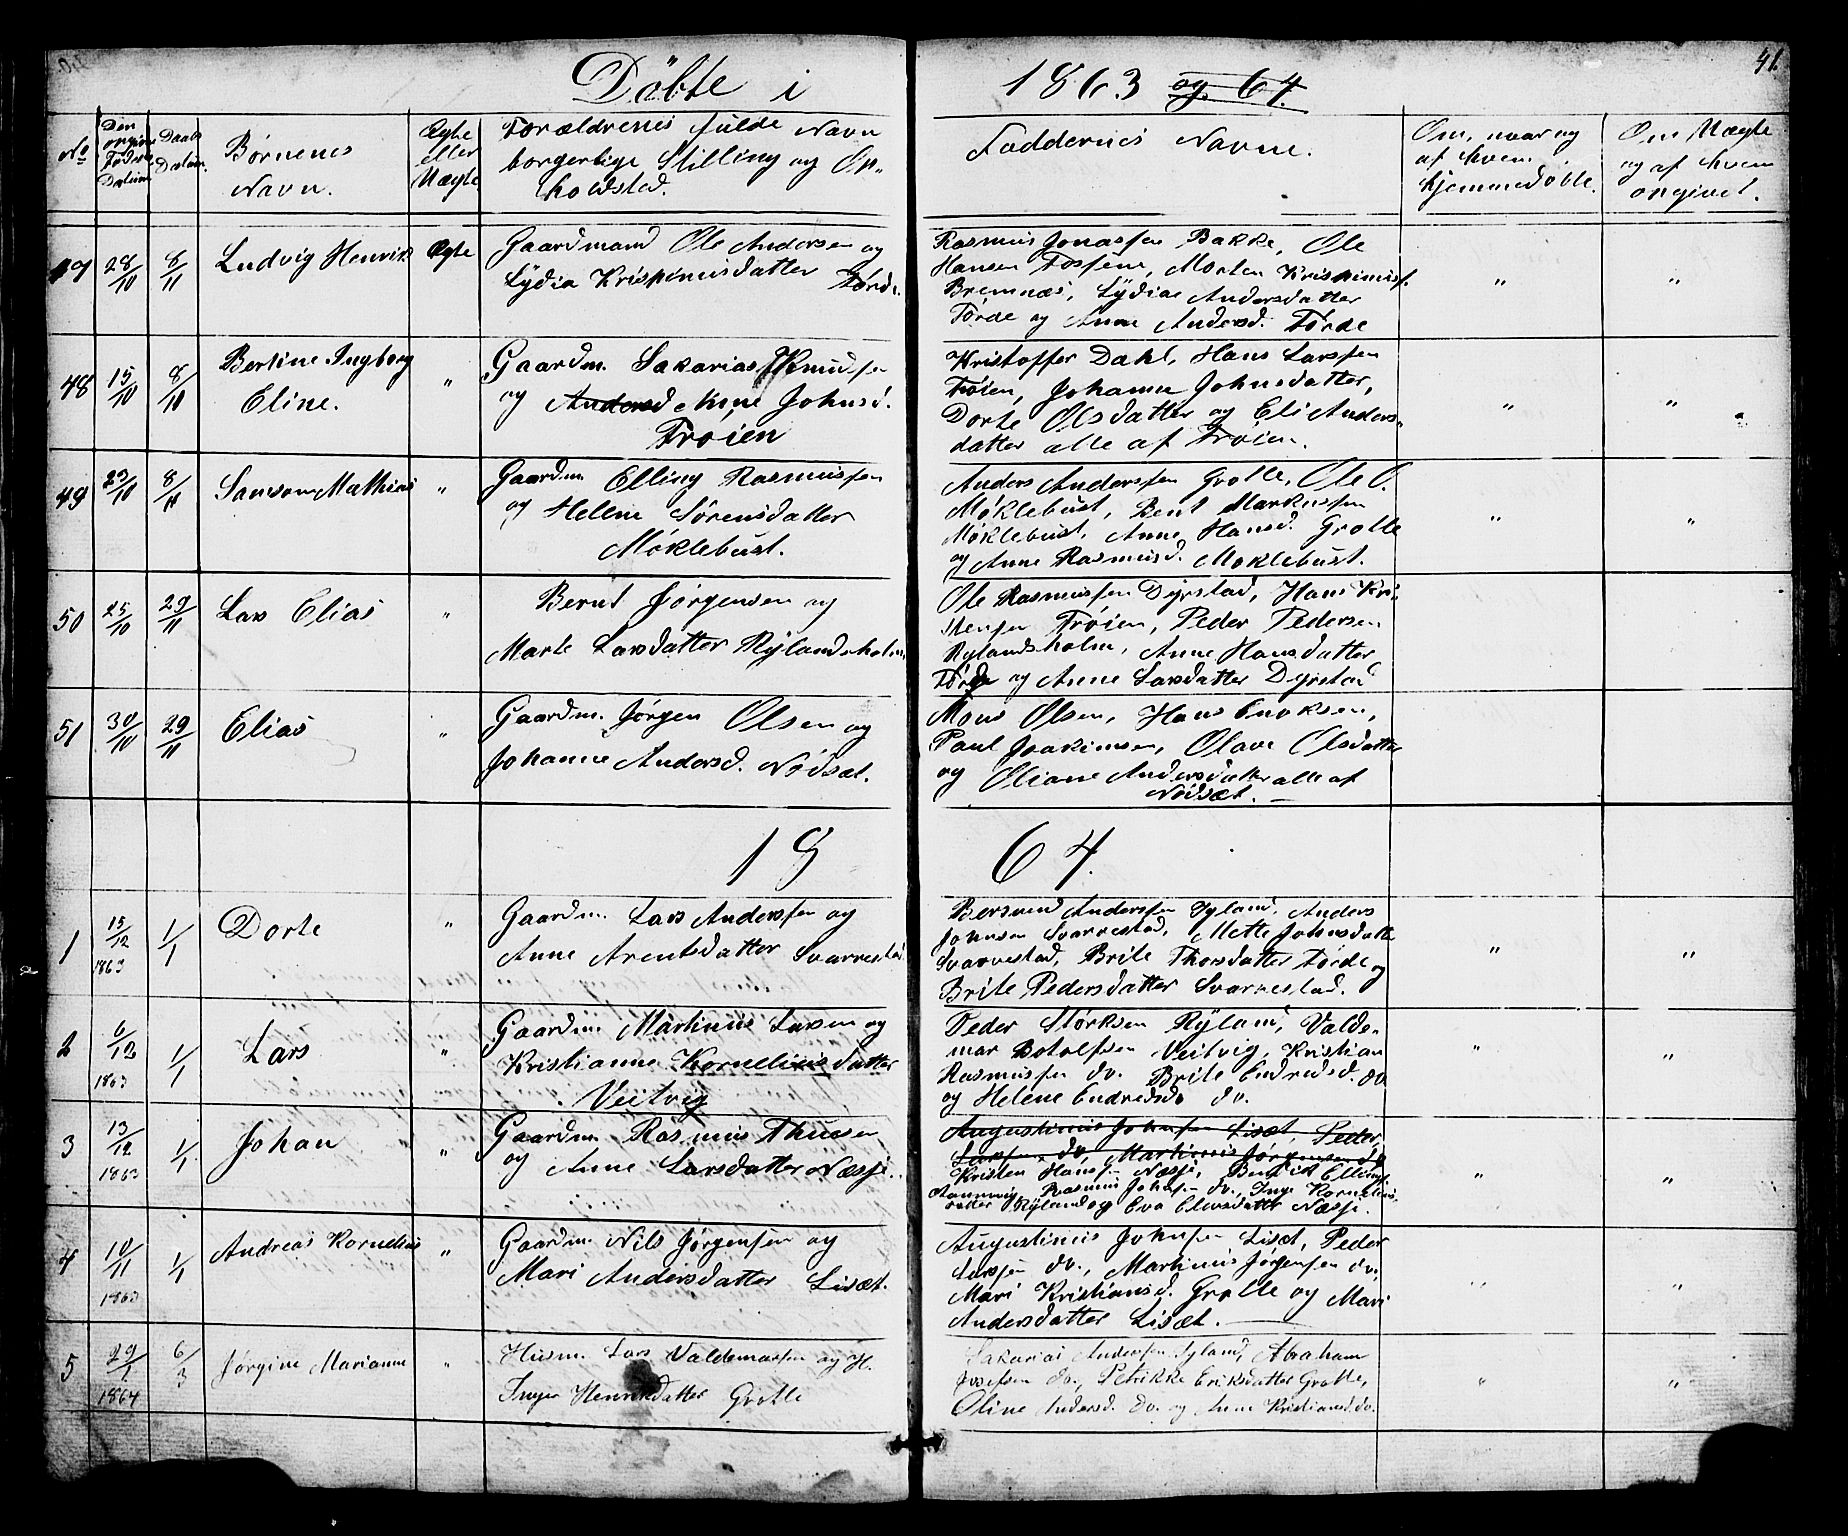 Döbte i 1863 og 64.
41.
No
Den
angivne
Fødsels
Datum
Daabs
Datum.
Børnenes
Navn.
Ægte
eller
Uægte
Forældrenes fulde Navn
borgerlige Stilling og Op-
holdsted.
Faddernes Navne.
Om, naar og
af hvem
hjemmedöbt.
Om Uægte
og af hvem
angivet.
47 28/10 8/11 Ludvig Henrik Ægte
Gaardmand Ole Andersen og
Lydia Krispinusdatter Førde.
Rasmus Jonassen Bakke, Ole
Hansen Fossene, Morten Krispinuss.
Bremnæs, Lydia Andersdatter
Førde og Anne Andersd. Førde
" "
48 15/10 8/10 Bertine Ingborg
Eline. "
Gaardm. Sakarias Knudsen
og Andersd Anne Johnsd.
Trøien
Kristoffer Dahl, Hans Larssen
Trøien, Johanne Johnsdatter,
Dorte Olsdatter og Eli Anders-
datter alle af Trøien.
" "
49 23/10 8/11 Samson Mathias "
Gaardm Elling Rasmussen
og Helene Sørensdatter
Møklebust.
Anders Anderssen Grotle, Ole O.
Møklebust, Bent Markussen
Møklebust, Anne Hansd. Grotle
og Anne Rasmusd. Moklebust.
" "
50 25/10 29/11 Lars Elias "
Bernt Jørgensen og
Marte Larsdatter Rylandsholm
Ole Rasmussen Dyrstad, Hans Kri-
stensen Trøien, Peder Pedersen
Rylandsholm, Anne Hansdatter
Førde og Anne Larsdatter Dyrstad
51 30/10 29/11 Elias "
Gaardm. Jørgen Olsen og
Johanne Andersd. Nødsæt.
Mons Olsen, Hans Enoksen,
Paul Joakimsen, Olave Olsdatter
og Oliane Andersdatter alle af
Nødsæt.
18 64.
1 15/12 1863 1/1 Dorte "
Gaardm. Lars Anderssen og
Anne Arentsdatter Svarvestad
Bersvend Anderssen Igland, Anders
Johnsen Svarvestad, Mette Johnsdatter
Svarvestad, Brite Thorsdatter Førde og
Brite Pedersdatter Svarvestad.
" "
2 6/12 1863 1/1 Lars "
Gaardm. Martinus Larsen og
Kristianne Korneliusdatter
Veitvig
Peder Størksen Ryland, Valde-
mar Botolfsen Veitvig, Kristian
Rasmussen do. Brite Endredsd. do
og Helene Endredsd. do.
" "
3 13/12 1863 1/1 Johan "
Gaardm. Rasmus Thuesen
og Anne Larsdatter Næsje.
Augustinus Johnsen Lisæt, Peder
Larssen do, Martinus Jørgensen do
Kristen Hanss. Næsje, Bendict Ellings.
Rasmus Johnsen do., Inge Kornelius-
datter Ryland og Eva Elersdatter Næsje.
" "
4 10/11 1863 1/1 Andreas Kornelius "
Gaardm. Nils Jørgensen og
Mari Andersdatter Lisæt.
Augustinus Johnsen Lisæt, Peder
Larssen do., Martinus Jørgensen do.
Mari Kristiansd. Grotle og Mari
Andersdatter Lisæt.
" "
5 29/1 1864 6/3 Jørgine Marianne "
Husm. Lars Valdemarsen og H.
Inger Henriksdatter Grotle
Sakarias Andersen Igland, Abraham
Josefsen do., Petrikke Eriksdatter Grotle,
Oline Andersd. do. og Anne Kristiansd. do.
" "